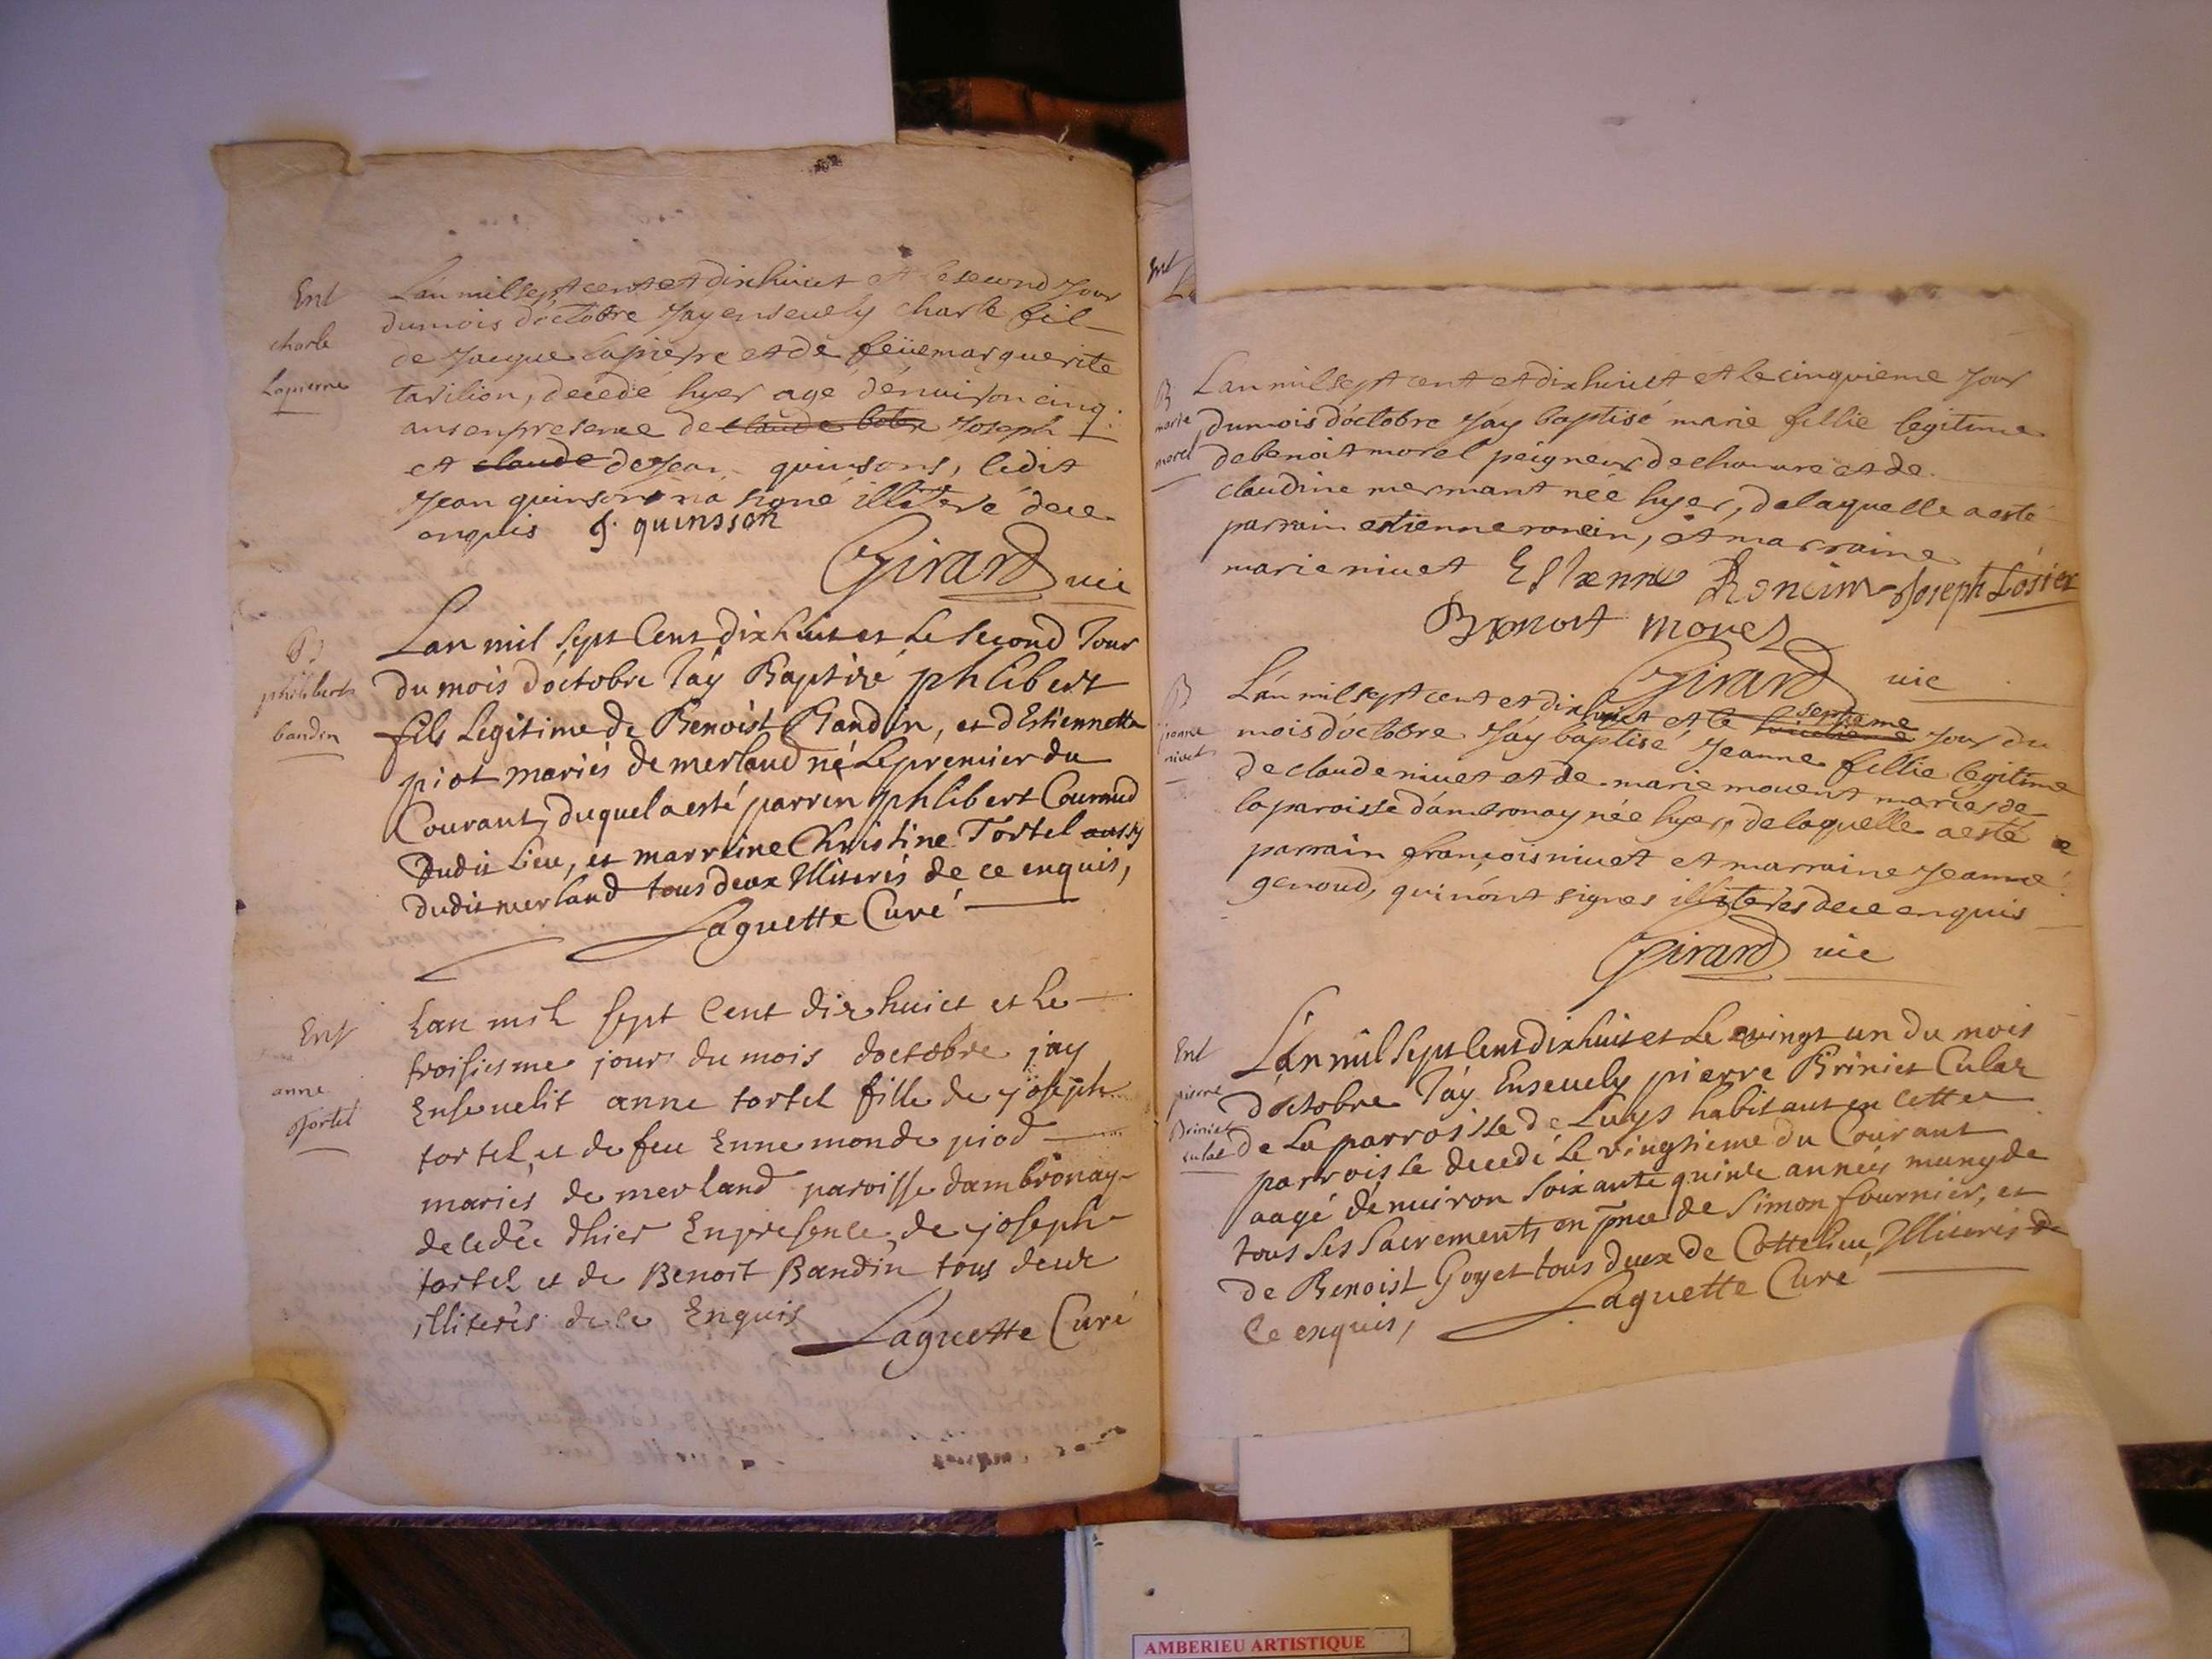 Ent
charle
Lapierre
Lan mil sept cent et dixhuict et le second Jour
du mois doctobre Jay ensevely charle fil
de Jacque Lapierre et de feüe marguerite
tavilion, decedé hyer agé denuiron cinq
ans en presence de claude Joseph
et claude de Jean quinsons, ledit
Jean quinson na signé illiteré de ce
enquis J. quinsson
Girard vic
B
philibert
bandin
Lan mil sept Cent dixhuit et Le second Jour
du mois doctobre Jáy Baptisé phlibert
fils Legitime de Benoist Bandin, et dEstiennette
piot mariés de merland né Le premier du
Courant, duquel a esté parrin phlibert Couraud
dudit Lieu, et marreine Christine Tortel aussy
dudit merland tous deux Illiterés de ce enquis,
Laguette Curé
Ent
anne
tortel
Lan mil sept Cent dixhuict et le
troisiesme jour du mois doctobre jay
Enseuelit anne tortel fille de joseph
tortel, et de feu Ennemonde piod
mariés de merland paroisse dambronay
decedée dhier En presence de joseph
tortel et de Benoit Bandin tous deux
illiterés de ce Enquis
Laguette Curé
Ent
B
marie
morel
Lan mil sept cent et dixhuict et le cinquieme Jour
du mois dóctobre Jáy baptisé marie fillie legitime
de benoit morel peigneur de chanure et de
claudine mermant née hyer, de laquelle a esté
parrain estienne roncin, et marraine
marie niuet Estienne Roncin Joseph Losier
Benoit morel
Girard vic
B
jeanne
niuet
Lán mil sept cent et dixhuict et le septieme Jour du
mois dóctobre Jáy baptisé Jeanne fillie legitime
de claude niuet et de marie mouent mariés de
la paroisse dámbronay née hyer, de laquelle a esté
parrain françois niuet et marraine Jeanne
genoud, qui nónt signes illiterés de ce enquis
Girard vic
Ent
pierre
Briniet
culas
Lán mil sept Cent dixhuit et Le vingt un du mois
doctobre Jáy Enseuely pierre Briniet Culas
de La parroisse de Luys habitant en cette
parroisse decedé Le vingtieme du Courant
aagé denuiron soixante quinze annéés muny de
tous ses sacrements en pnce de Simon fournier, et
de Benoist Goyet tous deux de Cottelieu, Illiterés de
Ce enquis,
Laguette Curé
AMBERIEU ARTISTIQUE